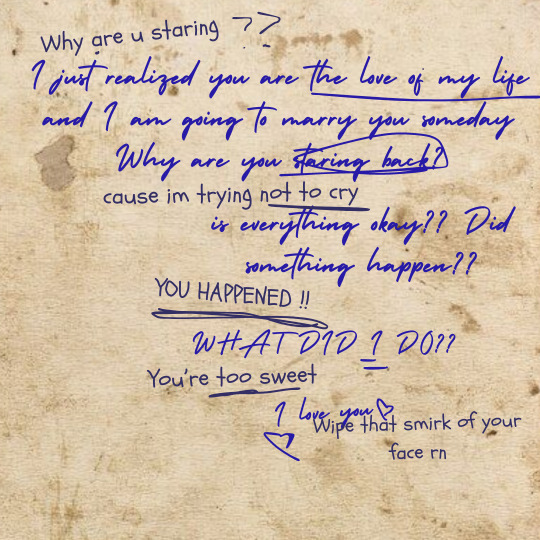 Why are u staring ??
I just realized you are the love of my life
and I am going to marry you someday
Why are you staring back?
cause im trying not to cry
is everything okay?? Did
something happen??
YOU HAPPENED !!
WHAT DID I DO??
You're too sweet
I love you♡
Wipe that smirk of your
face rn